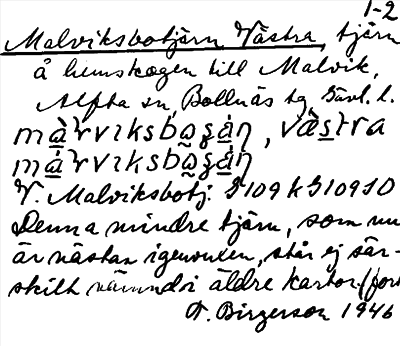 1-2
Malviksbotjärn Västra, tjärn
å hemskogen till Malvik,
Alfta sn, Bollnäs tg Gävl. l.
V. Malviksbotj. S109 k S109 SO
Denna mindre tjärn, som nu
är nästan igenvuxen, står ej sär-
skilt nämnd i äldre kartor. (fort
F. Birgerson 1946